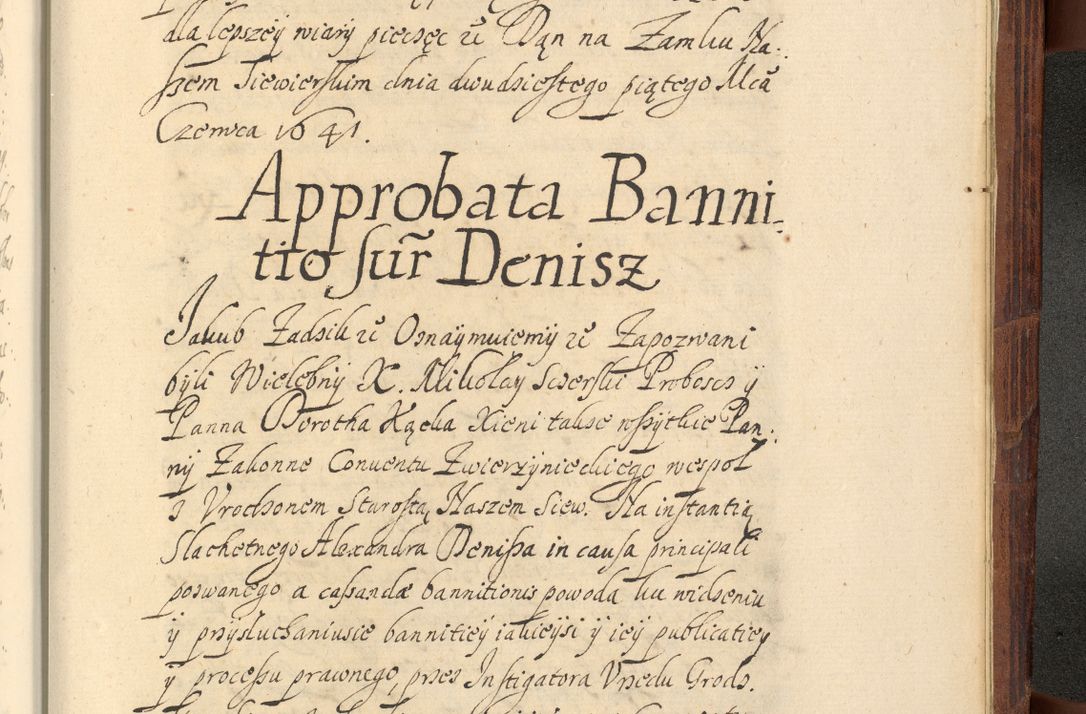 dla lepszey wiary pieczęc zc̃ Dąn na Zamku Na⸗
szem Siewierskim dnia dwudziestego piątego Mcã
Czerwca 1641.
Approbata Banni⸗
tio sur̃ Denisz
Jakub Zadzik zc̃ Oznaÿmuiemÿ zc̃ Zapozwani
bÿli Wielebnÿ X. Mikołaÿ Scierski Proboscz ÿ
Panna Dorotha Kącka Xieni takze wszÿtkie Pan⸗
nÿ Zakonne Conuentu Zwierzÿnieckiego wespoł
z Vrodzonem Starostą Naszem Siew. Na instantią
Slachetnego Alexandra Denisza in causa principali
pozwanego a cassandæ bannitionis powoda ku widzeniu
ÿ przÿsłuchaniusie bannitieÿ iakieÿsi ÿ ieÿ publicatieÿ
ÿ processu prawnego, przez Instigatora Vrzedu Grodz.